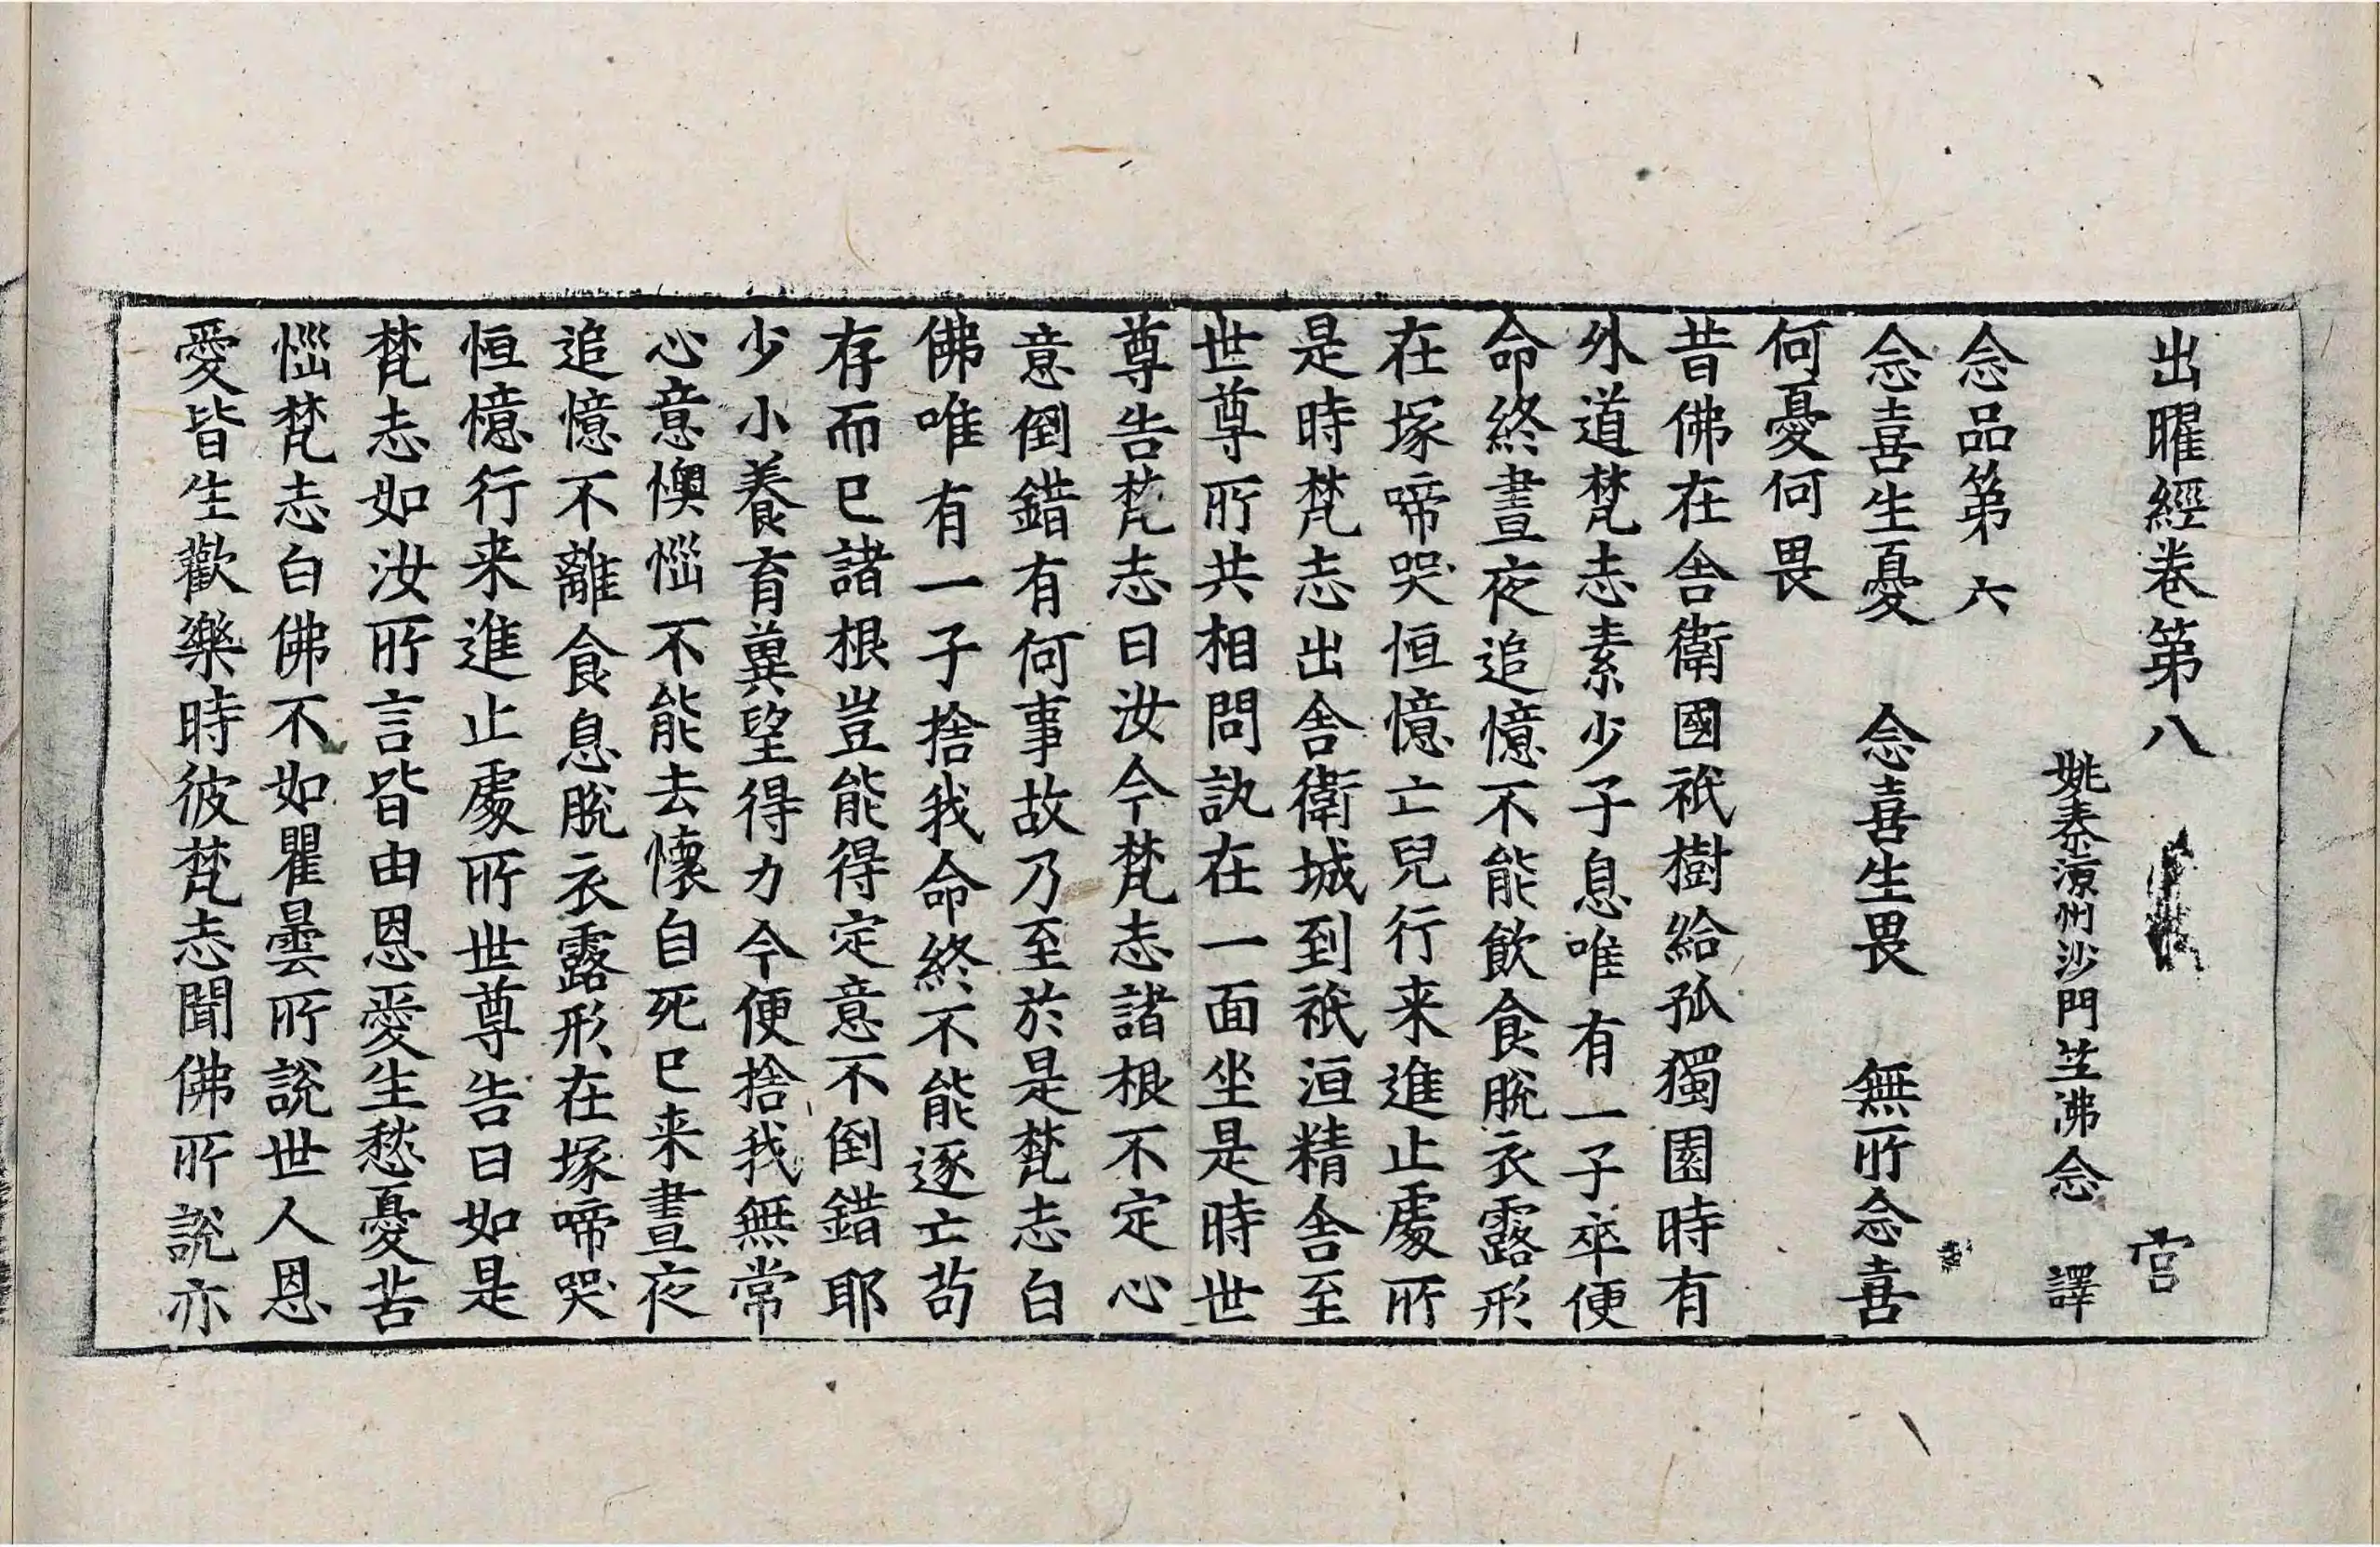 出曜經卷第八 宫
姚秦涼州沙門竺佛念 譯
念品第六
念喜生憂 念喜生畏 無所念喜
何憂何畏
昔佛在舍衛國祇樹給孤獨園時有
外道梵志素少子息唯有一子卒便
命終晝夜追憶不能飲食脫衣露形
在塚啼哭恒憶亡兒行来進止處所
是時梵志出舍衛城到祇洹精舍至
世尊所共相問訊在一面坐是時世
尊告梵志曰汝今梵志諸根不定心
意倒錯有何事故乃至於是梵志白
佛唯有一子捨我命終不能逐亡苟
存而已諸根豈能得定意不倒錯耶
少小養育冀望得力今便捨我無常
心意懊惱不能去懷自死已来晝夜
追憶不離食息脫衣露形在塚啼哭
恒憶行来進止處所世尊告曰如是
梵志如汝所言皆由恩愛生愁憂苦
惱梵志白佛不如瞿曇所說世人恩
愛皆生歡樂時彼梵志聞佛所說亦